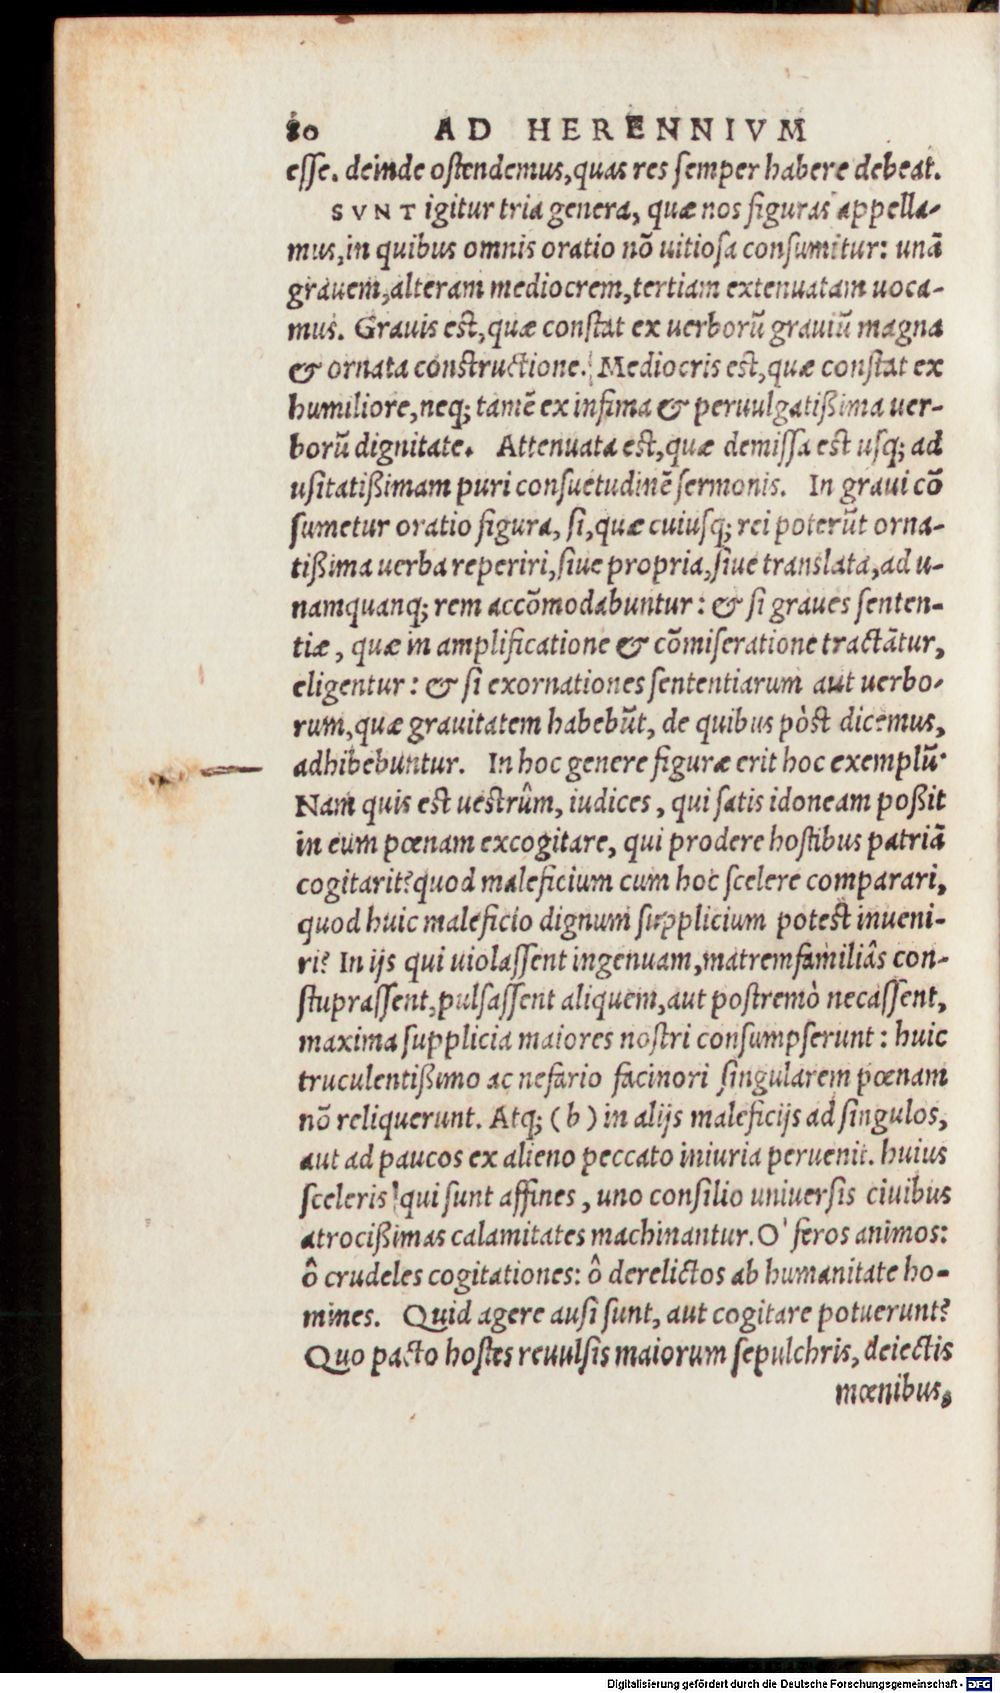 80 AD HERENNIVM
esse. deinde ostendemus, quas res semper habere debeat.
SVNT igitur tria genera, quæ nos figuras appella-
mus, in quibus omnis oratio nõ uitiosa consumitur: unã
grauem, alteram mediocrem, tertiam extenuatam uoca-
mus. Grauis est, quæ constat ex uerborũ grauiũ magna
& ornata constructione. Mediocris est, quæ constat ex
humiliore, neq; tamẽ ex infima & peruulgatißima uer-
borũ dignitate. Attenuata est, quæ demissa est usq; ad
usitatißimam puri consuetudinẽ sermonis. In graui cõ
sumetur oratio figura, si, quæ cuiusq; rei poterũt orna-
tißima uerba reperiri, siue propria, siue translata, ad u-
namquanq; rem accõmodabuntur: & si graues senten-
tiæ, quæ in amplificatione & cõmiseratione tractãtur,
eligentur: & si exornationes sententiarum aut uerbo-
rum, quæ grauitatem habebũt, de quibus pòst dicemus,
adhibebuntur. In hoc genere figuræ erit hoc exemplũ·
Nam quis est uestrûm, iudices, qui satis idoneam poßit
in eum pœnam excogitare, qui prodere hostibus patriã
cogitarit? quod maleficium cum hoc scelere comparari,
quod huic maleficio dignum supplicium potest inueni-
ri? In ijs qui uiolassent ingenuam, matremfamiliâs con-
stuprassent, pulsassent aliquem, aut postremò necassent,
maxima supplicia maiores nostri consumpserunt: huic
truculentißimo ac nefario facinori singularem pœnam
nõ reliquerunt. Atq; (b) in alijs maleficijs ad singulos,
aut ad paucos ex alieno peccato iniuria peruenit. huius
sceleris qui sunt affines, uno consilio uniuersis ciuibus
atrocißimas calamitates machinantur. O' feros animos:
ô crudeles cogitationes: ô derelictos ab humanitate ho-
mines. Quid agere ausi sunt, aut cogitare potuerunt?
Quo pacto hostes reuulsis maiorum sepulchris, deiectis
mœnibus,
Digitalisierung gefördert durch die Deutsche Forschungsgemeinschaft - DFG